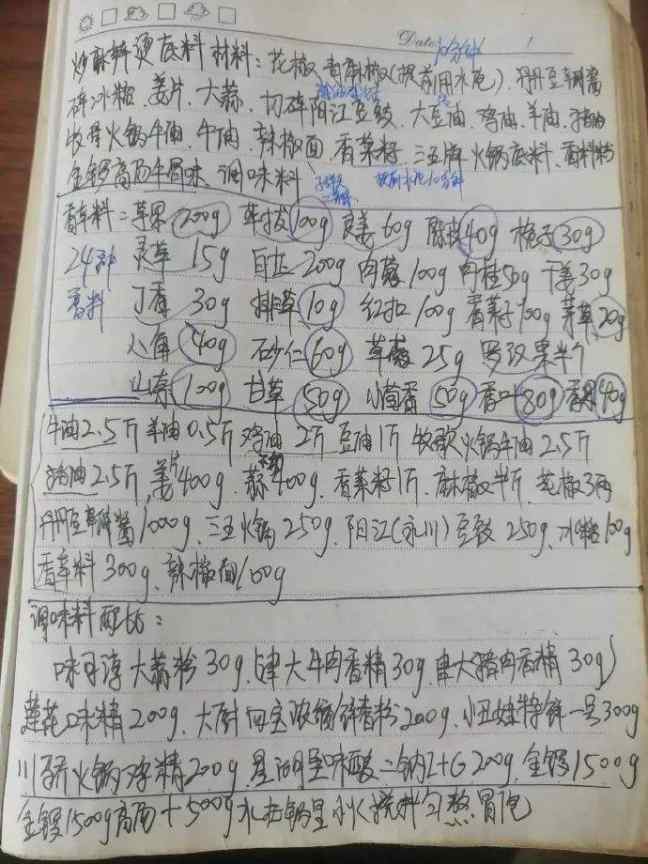 Date: 10分钟 1
炒麻辣烫底料材料：花椒、青麻椒(提前用水泡)、丹丹豆瓣酱
碎冰糖、姜片、大蒜、切碎阳江豆豉、大豆油、鸡油、羊油、猪油
牧哥火锅牛油、牛油、辣椒面、香菜籽、三五牌火锅底料、香料粉
金锣高汤牛骨味、调味料
提前水泡10分钟
香辛料：草果200g 荜拔100g 良姜60g 陈皮40g 栀子30g
24种 灵草15g 白芷200g 肉蔻100g 肉桂50g 干姜30g
香料 丁香30g 排草10g 红扣100g 香菜籽100g 茅草20g
八角40g 砂仁60g 草蔻25g 罗汉果半个
山奈100g 甘草50g 小茴香50g 香叶80g 香果40g
牛油2.5斤 羊油0.5斤 鸡油2斤 豆油1斤 牧歌火锅牛油2.5斤
猪油2.5斤、姜片400g、蒜400g、香菜籽1斤、麻椒半斤、花椒3两
丹丹豆瓣酱1000g、三五火锅250g、阳江(永川)豆豉250g、冰糖100g
香辛料300g、辣椒面100g
调味料配比：
味可淳大蒜粉30g、(津大牛肉香精30g、津大猪肉香精30g)
莲花味精200g、大厨四宝浓缩鲜香粉200g、小丑娃特鲜一号300g
川骄火锅浮精200g、星湖呈味酸二钠I+G 200g、金锣1500g
金锣1500g高汤+500g水在锅里小火搅拌匀熬冒泡